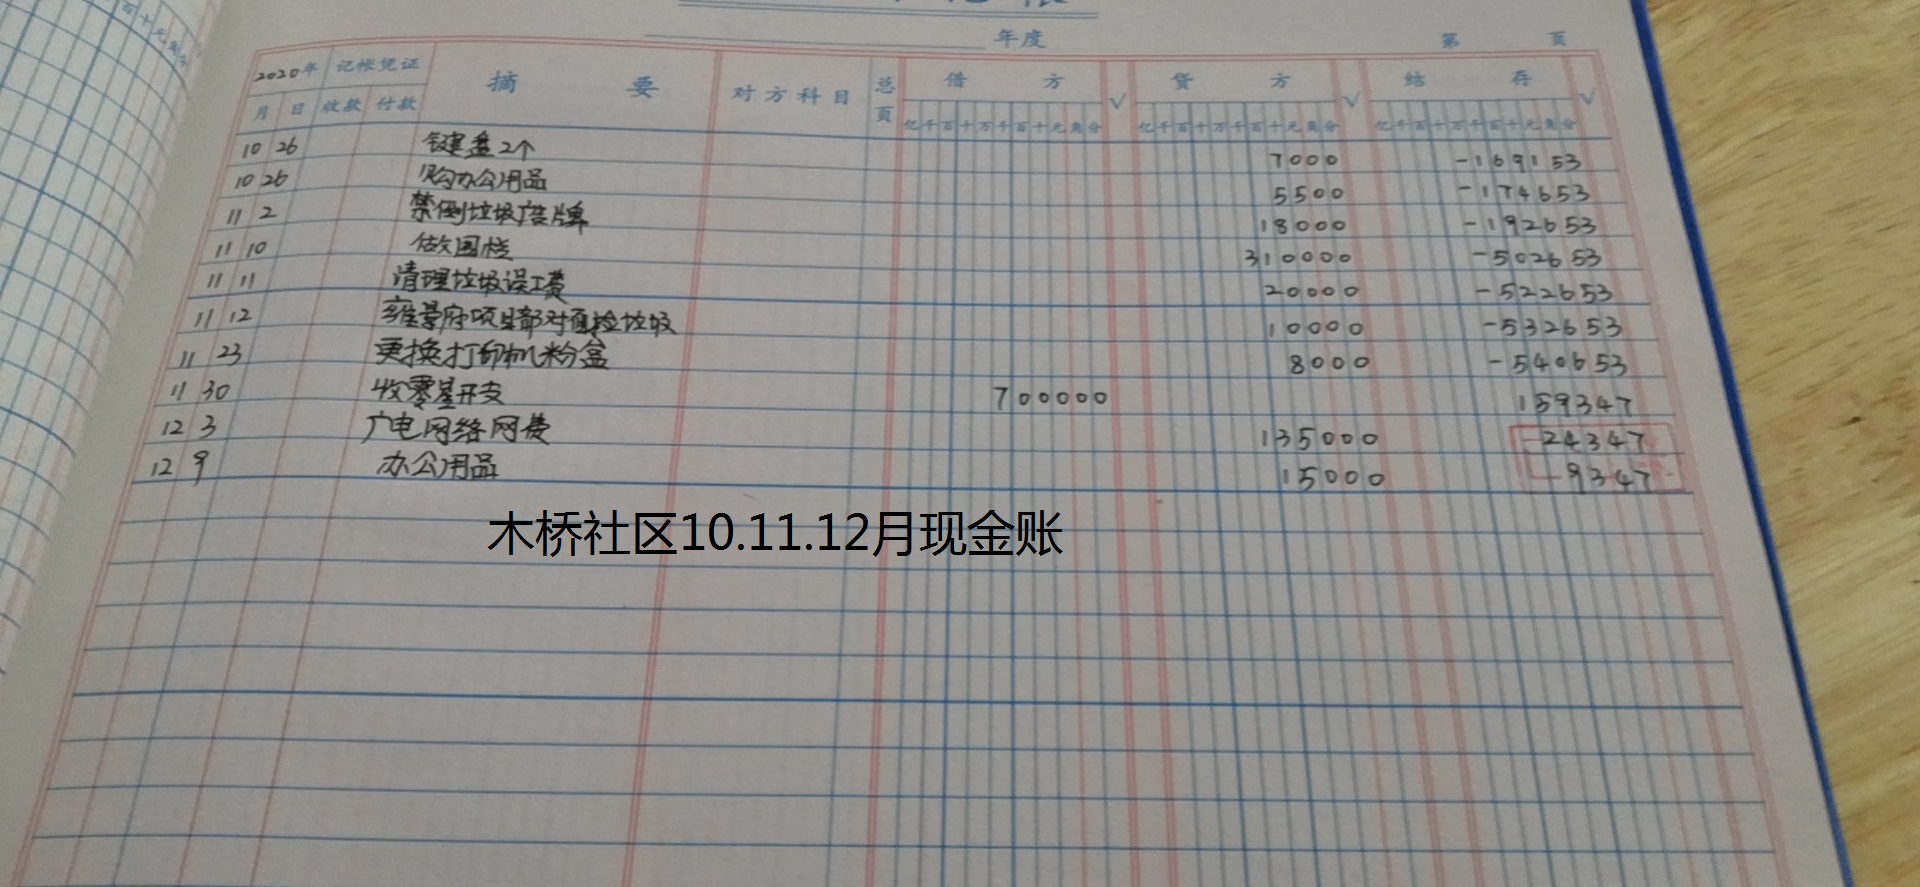 年度 第 页
2020年 记帐凭证 摘 要 对方科目 总页 借 方 √ 贷 方 √ 结 存 √
月 日 收款 付款 亿千百十万千百十元角分 亿千百十万千百十元角分 亿千百十万千百十元角分
10 26 键盘2个 7000 -169153
10 26 购办公用品 5500 -174653
11 2 禁倒垃圾广告牌 18000 -192653
11 10 做围栏 310000 -502653
11 11 清理垃圾误工费 20000 -522653
11 12 景府项目部对面捡垃圾 10000 -532653
11 23 更换打印机粉盒 8000 -540653
11 30 收零星开支 700000 159347
12 3 广电网络网费 135000 24347
12 9 办公用品 15000 9347
木桥社区10.11.12月现金账